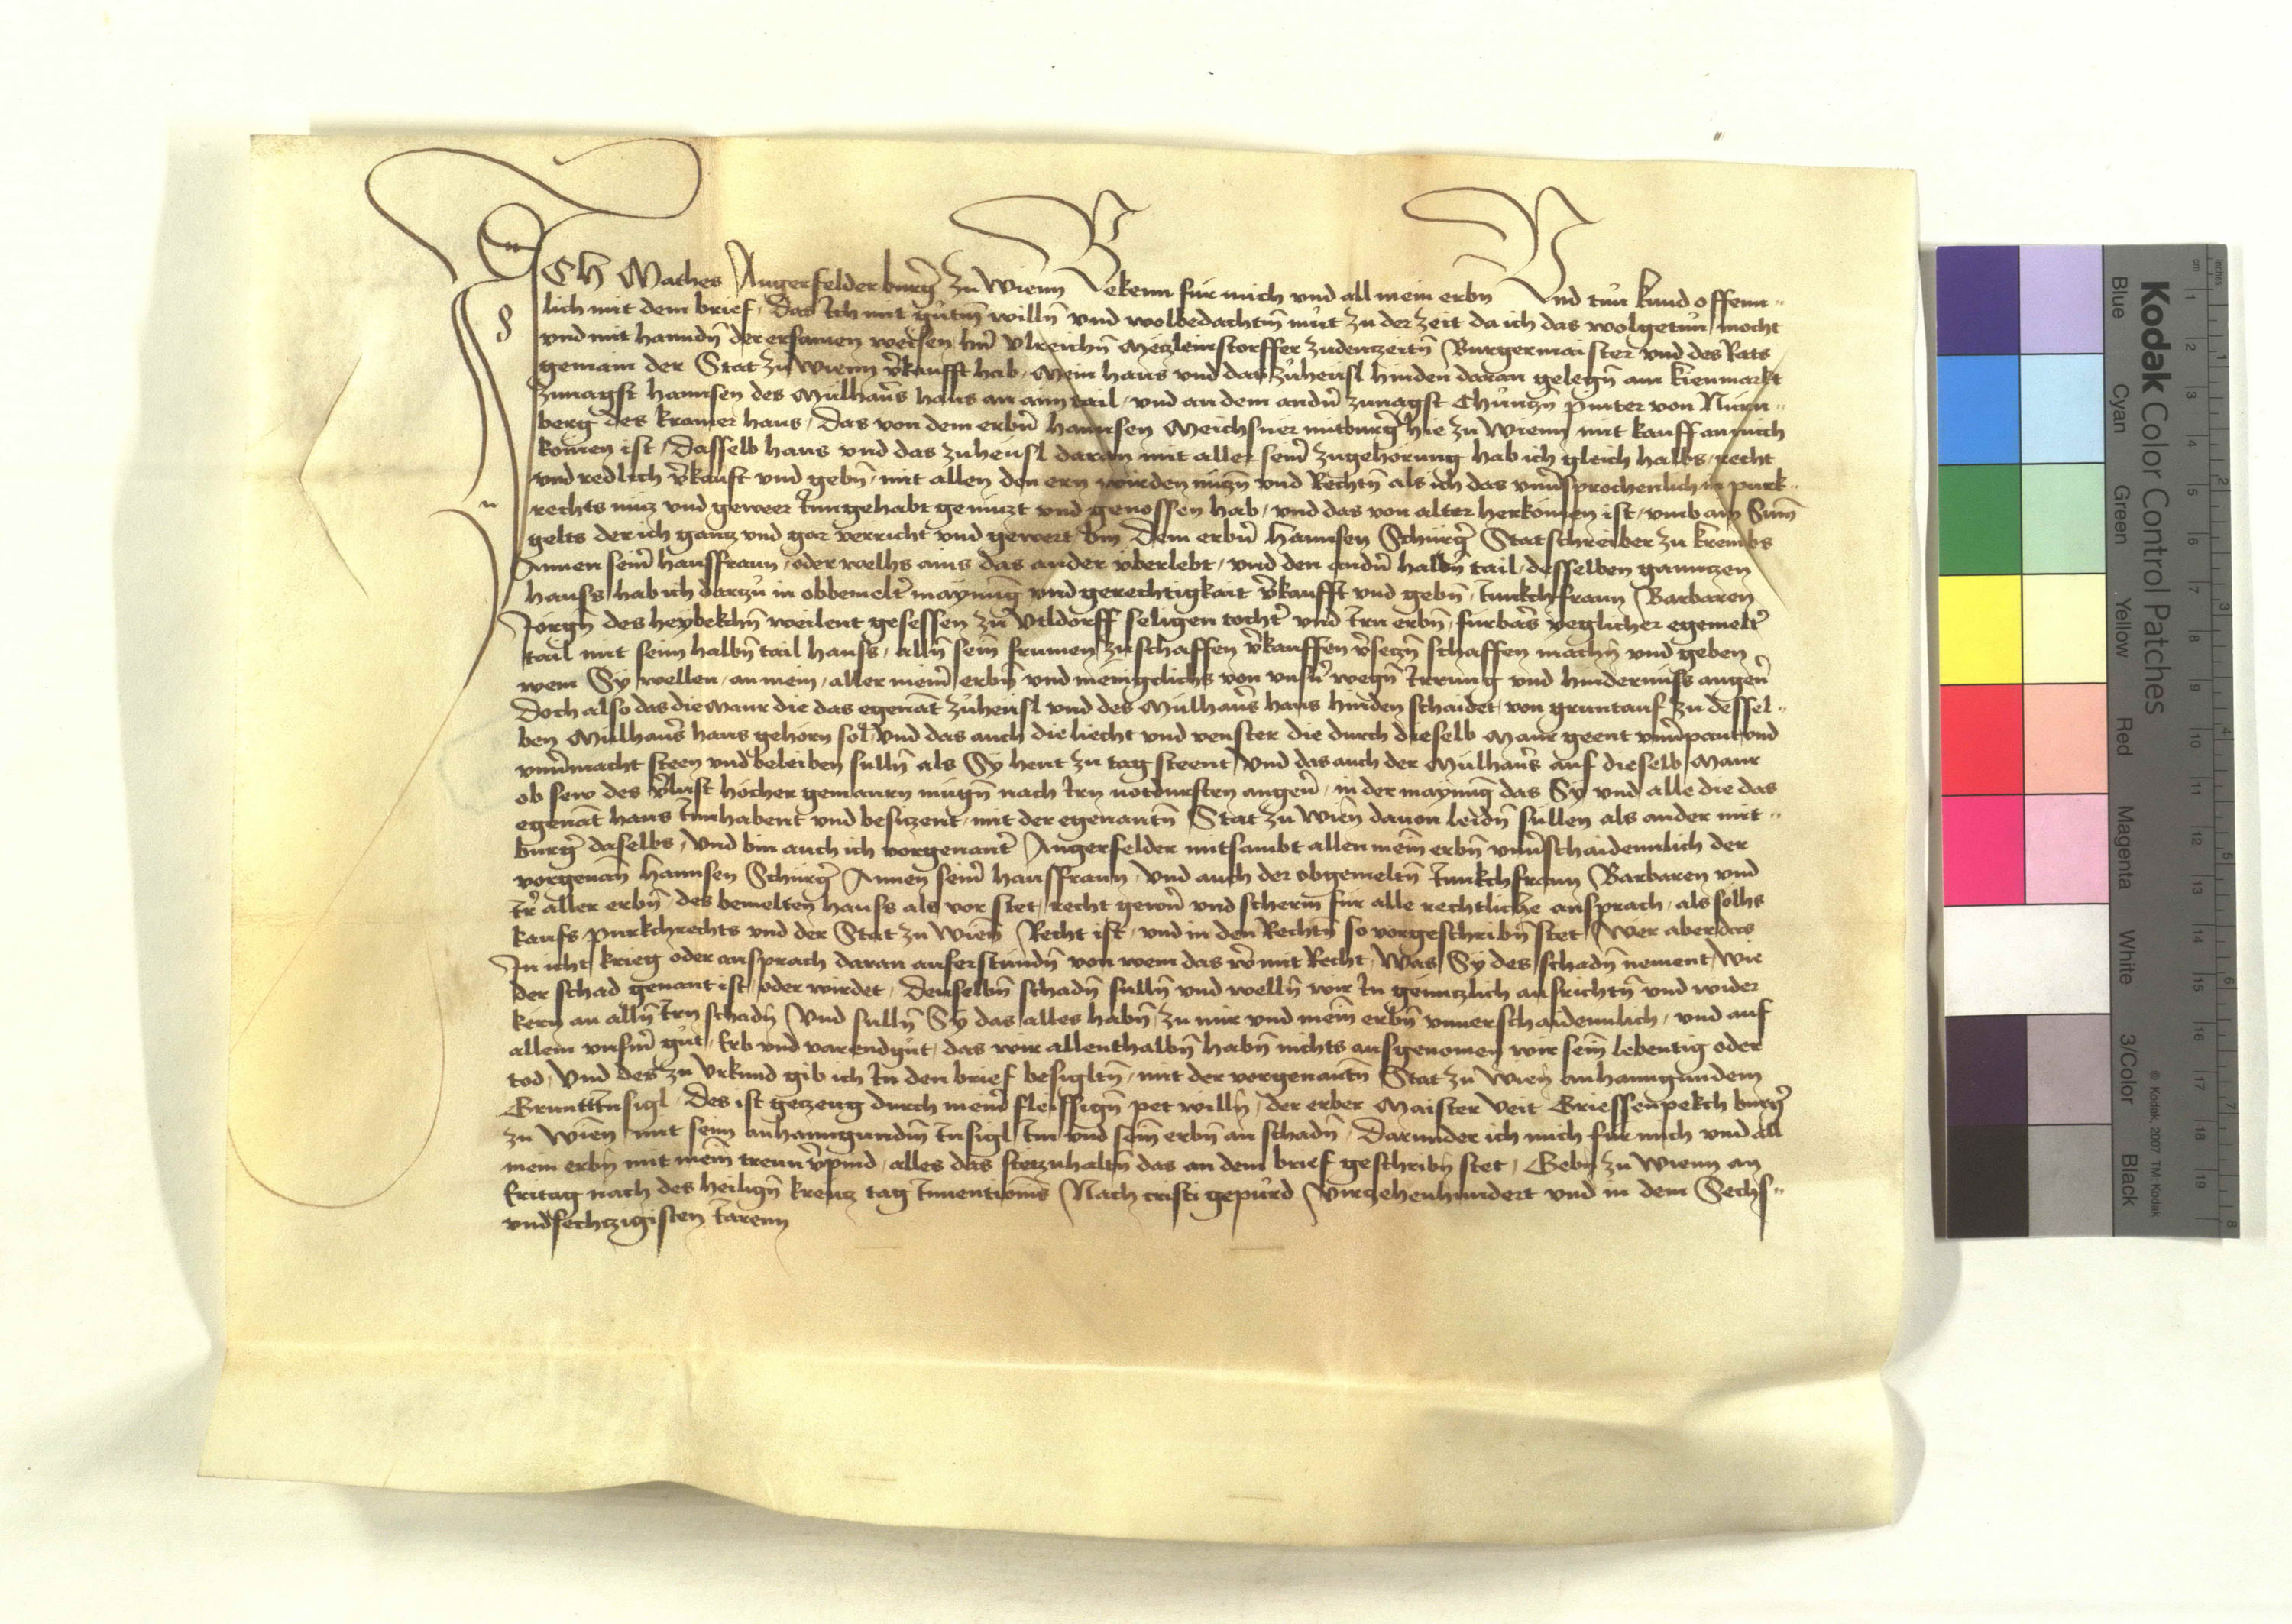 ICH Mathes Angerfelder burger zu Wienn Bekenn fur mich vnd all mein erbn Vnd tun kund offenn„
lich mit dem brief, Das Ich mit gutm willn vnd wolbedachtm mut zu der zeit da ich das wolgetun mocht
vnd mit hanndn der ersamen weisen hern Vlreichn Meczleinstorffer zudenczeitn Burgermaister vnd des Rats
gemain der Stat zu Wienn verkaufft hab, Mein haus vnd das zuheusl hinden daran gelegn am kienmarkt
zunagst hannsen des Mulhauser haus an aim tail, vnd an dem andern zunagst Chunczn pinter von Nurn„
berg des kramer haus, Das von dem erbern hannsen Meichsner mitburger hie zu Wienn mit kauff an mich
komen ist, Dasselb haus vnd das zuheusl daran mit aller seiner zugehorung hab ich gleich halbs, recht
vnd redlich verkauft vnd gebn, mit allen den ern wirden nuczn vnd Rechtn als ich das vnuersprochenlich in purk„
rechts nucz vnd geweer Inngehabt genuczt vnd genossen hab, vnd das von alter herkomen ist, vmb ain Sum
gelts der ich gancz vnd gar verricht vnd gewert bin Dem erbern hannsen Schurger Statschreiber zu krembs
Annen seiner hausfraun, oder welhs ains das ander vberlebt, vnd den andern halbn tail, desselben ganntzen
hauss hab ich darczu in obbemelter maynung vnd gerechtigkait verkaufft vnd gebn, Junkchfraun Barbaren
Jorgn des heybekchn weilent gesessen zu Vtldorff seligen tochter vnd Irn erbn, furbas yeglicher egemelter
tail mit seim halbn tail hauss, alln sein frumen zuschaffen verkauffen verseczn schaffen machn vnd geben
wem Sy wellen, an mein, aller meiner erbn vnd menigclichs von vnsern wegn Irrung vnd hindernuss angeuer
Doch also das die Maur die das egenant zuheusl vnd des Mulhauser haus hinden schaidet, von gruntauf zu dessel„
ben Mulhauser haus gehorn sol, vnd das auch die liecht vnd venster die durch dieselb Maur geent vnuerpaut vnd
vnuermacht steen vnd beleiben sulln als Sy heut zu tag steent, Vnd das auch der Mulhauser auf dieselb Maur
ob sew des verlust hocher gemaurn mugn nach Irn notdurften angeuer, in der maynung das Sy vnd alle die das
egenant haus Innhabent vnd besiczent, mit der egenantn Stat zu Wienn dauon leidn sullen als ander mit„
burger daselbs, Vnd bin auch ich vorgenanter Angerfelder mitsambt allen mein erbn vnuerschaidennlich der
vorgenann hannsen Schurger Annen seiner hausfraun, Vnd auch der obgemeltn Junkchfraun Barbaren vnd
Ir aller erbn, des bemelten hauss als vor stet, recht gewern vnd scherm fur alle rechtliche ansprach, als solhs
kaufs purkchrechts vnd der Stat zu Wienn Recht ist, vnd in den Rechtn so vorgeschribn stet, Wer aber das
In icht krieg oder ansprach daran auferstundn von wem das wer mit Recht, Was Sy des schadn nement, wie
der schad genant ist, oder wirdet, Denselbn schadn sulln vnd welln wir In genntzlich ausrichtn vnd wider
kern an alln Irn schadn Vnd sulln Sy das alles habn, zu mir vnd mein erbn vnuerschaidennlich, vnd auf
allem vnserm gut, Erb vnd varendgut, das wir allenthalbn habn nichts ausgenomen wir sein lebentig oder
tod, Vnd des zu Vrkund gib ich In den brief besigltn, mit der vorgenantn Stat zu Wienn anhanngundem
Gruntinsigl, Des ist geczeug durch meiner fleissign pet willn, der erber Maister Veit Griessenpekch burger
zu Wienn, mit seim anhanngundm Insigl, Im vnd sein erbn an schadn, Darunder ich mich fur mich vnd all
mein erbn mit mein treun verpind, alles das stetzuhaltn das an dem brief geschribn stet, Gebn zu Wienn an
Eritag nach des heilign kreutz tag Inuentionis Nach cristi gepurd Virczehenhundert vnd in dem Sechs„
vndsechczigisten Jarenn